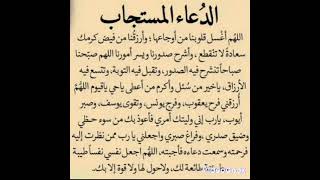 الدُعاء المستجاب
اللهُم أغسل قلوبنا من أوجاعها ؛ وأرزقنا من فيض كرمك
سعادةً لا تنقطع ، وأشرح صدورنا ويسر أمورنا اللهم صبّحنا
صباحاً تنشرح فيه الصدور، وتقبل فيه التوبة، وتتسع فيه
الأرزاق، ياخير من سُئل وأكرم من أعطى ياحي ياقيوم اللهُمّ
أرزقني فرح يعقوب، وفرج يونس، وتقوى يوسف، وصبر
أيوب، يارب إني وليتك أمري فأعوذ بك من سوء حظي
وضيق صدري، وفراغ صبري واجعلني يا رب ممن نظرت إليه
فرحمته وسمعت دعاءه فأجبته، اللهم اجعل نفسي نفساً طيبة
طائعة لك، ولاحول لها ولا قوة إلا بك.